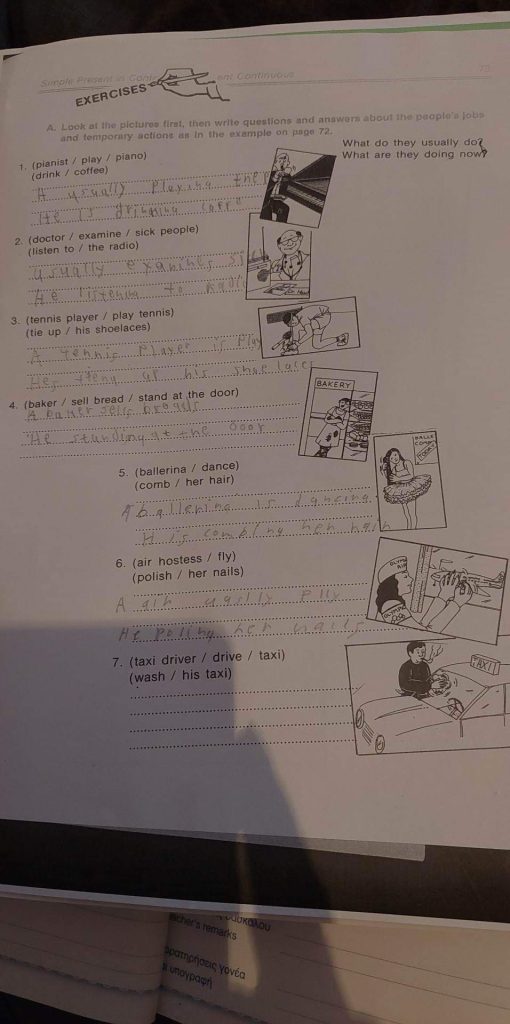 Simple Present in Con ent Continuous 73
EXERCISES
A. Look at the pictures first, then write questions and answers about the people's jobs
and temporary actions as in the example on page 72.
What do they usually do?
What are they doing now?
1. (pianist / play / piano)
(drink / coffee)
A usually playing the p
He is drinking
2. (doctor / examine / sick people)
(listen to / the radio)
usually examines si
He listening to radio
3. (tennis player / play tennis)
(tie up / his shoelaces)
A tennis player is play
up his shoe laces
BAKERY
4. (baker / sell bread / stand at the door)
A baker sells breads
He standing at the door
5. (ballerina / dance)
(comb / her hair)
A ballerina is dancing
H is combing her hair
6. (air hostess / fly)
(polish / her nails)
A air usally flly
He poling her nails
7. (taxi driver / drive / taxi)
(wash / his taxi)
TAXI
acher's remarks
αρατηρήσεις γονέα
ι υπογραφή